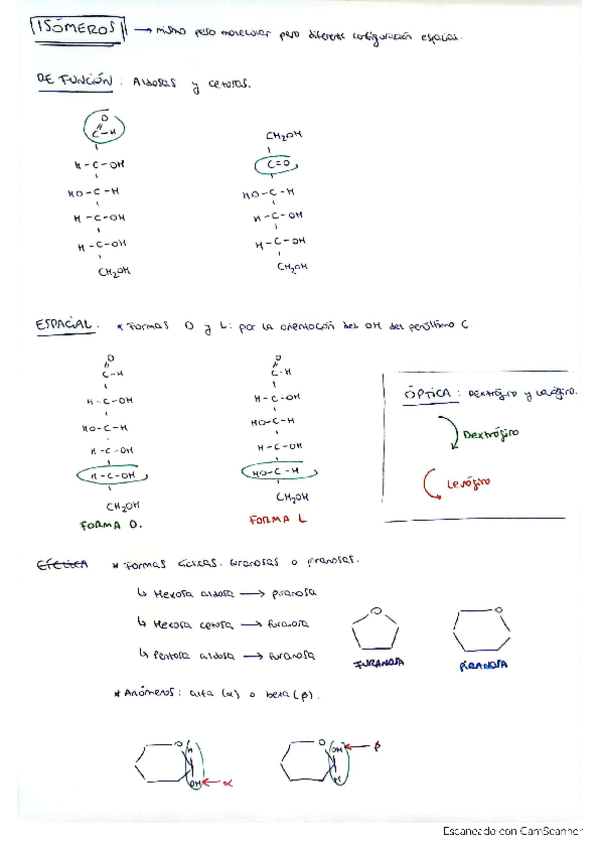 ISÓMEROS → mismo peso molecular pero diferente configuración espacial.
DE FUNCIÓN: Aldosas y cetosas.
O
C-H
H-C-OH
HO-C-H
H-C-OH
H-C-OH
CH2OH
CH2OH
C=O
HO-C-H
H-C-OH
H-C-OH
CH2OH
ESPACIAL. * Formas D y L: por la orientación del OH del penúltimo C.
O
C-H
H-C-OH
HO-C-H
H-C-OH
H-C-OH
CH2OH
FORMA D.
O
C-H
H-C-OH
HO-C-H
H-C-OH
HO-C-H
CH2OH
FORMA L
ÓPTICA: Dextrógiro y Levógiro.
Dextrógiro
Levógiro
* Formas cíclicas. furanosas o piranosas.
↳ Hexosa aldosa → piranosa
↳ Hexosa cetosa → furanosa
↳ Pentosa aldosa → furanosa
O
FURANOSA
O
PIRANOSA
* Anómeros: alfa (α) o beta (β).
O
H
OH ← α
O
OH ← β
H
Escaneado con CamScanner